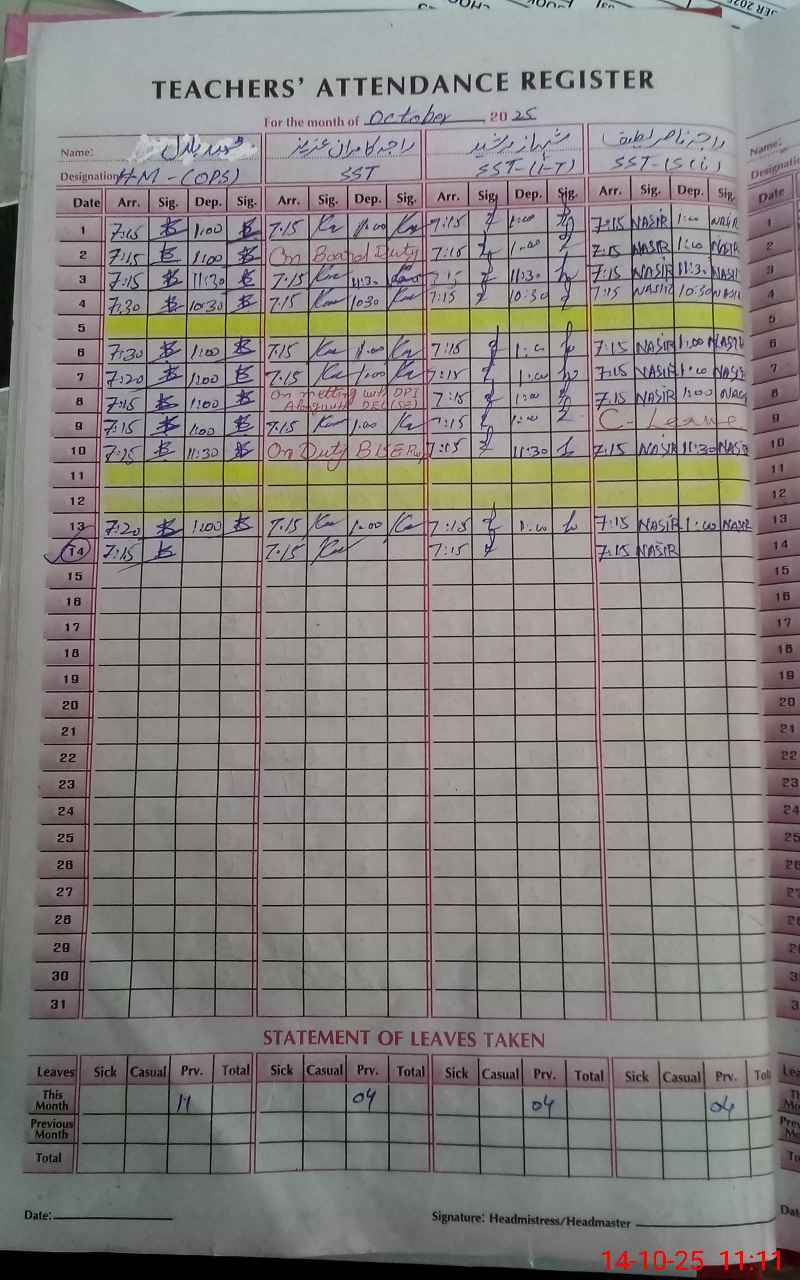 TEACHERS' ATTENDANCE REGISTER
For the month of October 2025
Name: راجہ کامران عزیز شہناز پرشید راجہ ناصر لطیف
Designation HM-(OPS) SST SST-(I-T) SST-(Sci)
Date Arr. Sig. Dep. Sig. Arr. Sig. Dep. Sig. Arr. Sig. Dep. Sig. Arr. Sig. Dep. Sig.
1 7:15 1:00 7.15 1.00 7:15 1:00 7:15 NASIR 1:00 NASIR
2 7:15 1:00 On Board Duty 7:15 1.00 7:15 NASIR 1:00 NASIR
3 7:15 11:30 7.15 11:30 7:15 11:30 7:15 NASIR 11:30 NASIR
4 7:30 10:30 7.15 1030 7:15 10:30 7:15 NASIR 10:30 NASIR
5
6 7:30 1:00 7.15 1.00 7:15 1:00 7:15 NASIR 1:00 NASIR
7 7:20 1:00 7.15 1.00 7:15 1:00 7:15 NASIR 1:00 NASIR
8 7:15 1:00 On metting with DPI 7:15 1:00 7:15 NASIR 1:00
9 7:15 1:00 7.15 1.00 7:15 1:00 C-Leave
10 7:15 11:30 On Duty BISE 7:15 11:30 7:15 NASIR 11:30 NASIR
11
12
13 7:20 1:00 7.15 1.00 7:15 1:00 7:15 NASIR 1:00 NASIR
14 7:15 7.15 7:15 7:15 NASIR
15
16
17
18
19
20
21
22
23
24
25
26
27
28
29
30
31
STATEMENT OF LEAVES TAKEN
Leaves Sick Casual Prv. Total Sick Casual Prv. Total Sick Casual Prv. Total Sick Casual Prv.
This Month 11 04 04 04
Previous Month
Total
Date: Signature: Headmistress/Headmaster
14-10-25 11:11